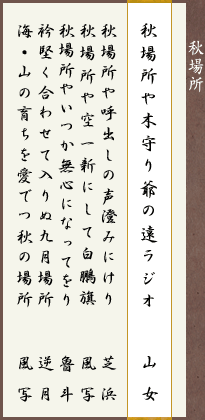 秋場所
秋場所や木守り爺の遠ラジオ　山女
秋場所や呼出しの声澄みにけり　芝浜
秋場所や空一新にして白鵬旗　風写
秋場所やいつか無心になってをり　魯斗
衿堅く合わせて入りぬ九月場所　逆月
海・山の育ちを愛でつ秋の場所　風写